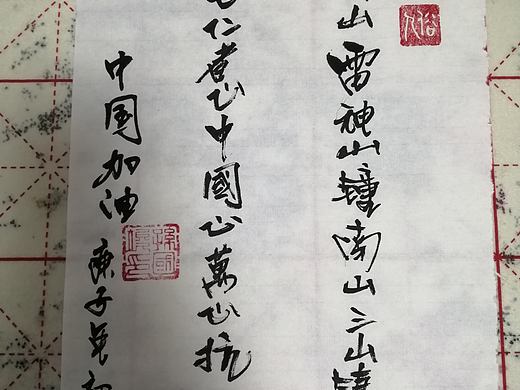 山雷神山鐘南山三山
心仁者心中國心萬心抗
中国加油 庚子